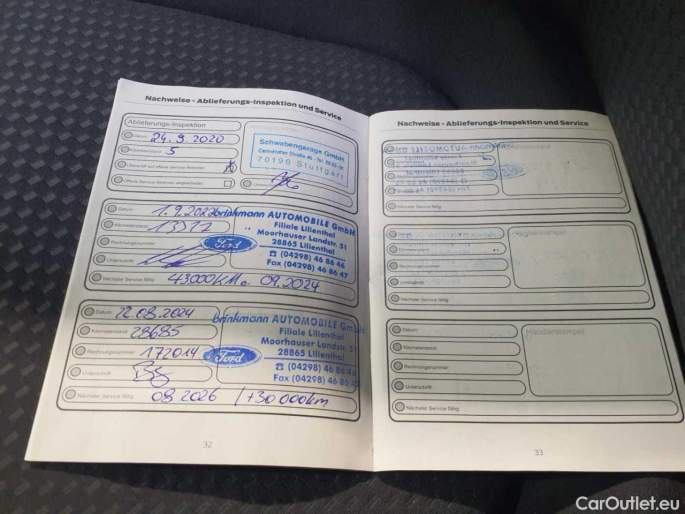 Nachweise - Ablieferungs-Inspektion und Service
Ablieferungs-Inspektion
Datum 24.9.2020
5
Schwabengarage GmbH
70190 Stuttgart
Datum 1.9.2022
Kilometerstand 13577
Rechnungsnummer
Unterschrift
Nächster Service fällig 43000KM o. 09.2024
brinkmann AUTOMOBILE GmbH
Filiale Lilienthal
Moorhauser Landstr. 51
28865 Lilienthal
☎ (04298) 46 86 46
Fax (04298) 46 86 47
Ford
Datum 22.08.2024
Kilometerstand 28685
Rechnungsnummer 172014
Unterschrift
Nächster Service fällig 08.2026 / +30 000km
brinkmann AUTOMOBILE GmbH
Filiale Lilienthal
Moorhauser Landstr. 51
28865 Lilienthal
☎ (04298) 46 86 46
Fax (04298) 46 86
Ford
32
Nachweise - Ablieferungs-Inspektion und Service
Nächster Service fällig
Nächster Service fällig
Datum
Kilometerstand
Rechnungsnummer
Unterschrift
Nächster Service fällig
Händlerstempel
33
CarOutlet.eu